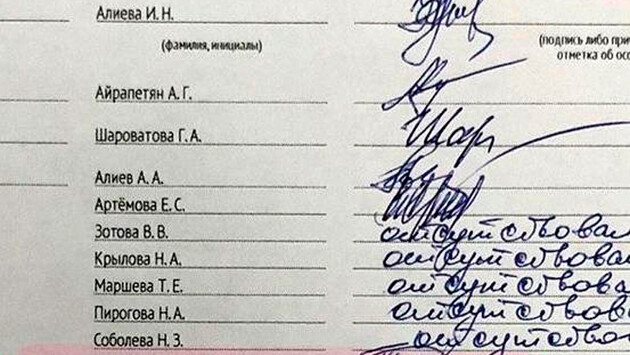 Алиева И. Н.
(фамилия, инициалы)
(подпись либо при
отметка об осо
Айрапетян А. Г.
Шароватова Г. А. Шар
Алиев А. А.
Артёмова Е. С.
Зотова В. В. отсутствовал
Крылова Н. А. отсутствова
Маршева Т. Е. отсутствова
Пирогова Н. А. отсутствова
Соболева Н. З. отсутство